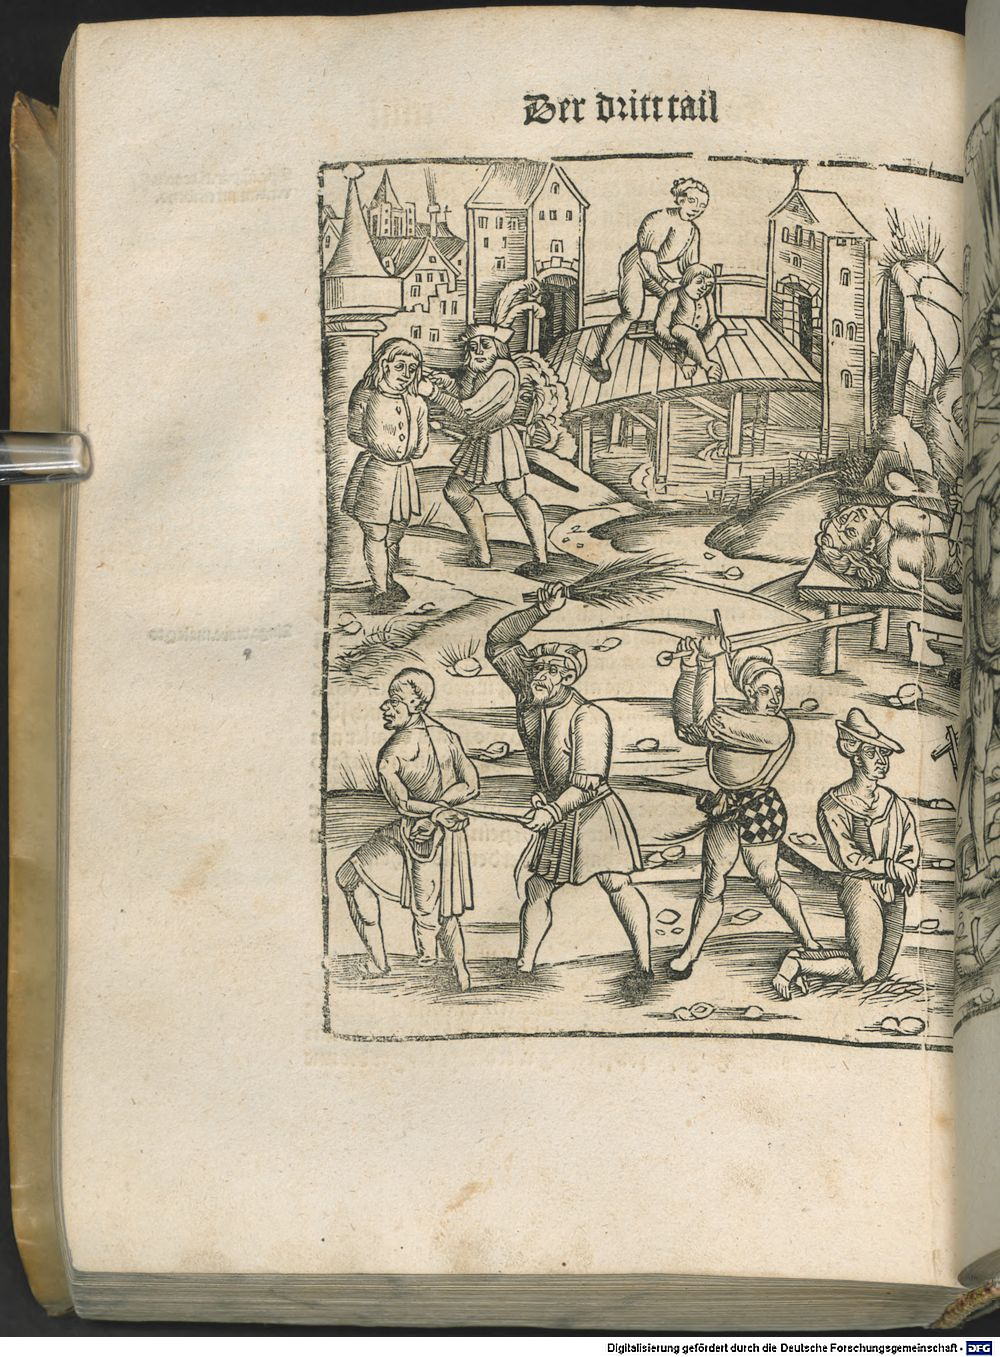 Der dritt tail
Digitalisierung gefördert durch die Deutsche Forschungsgemeinschaft - DFG